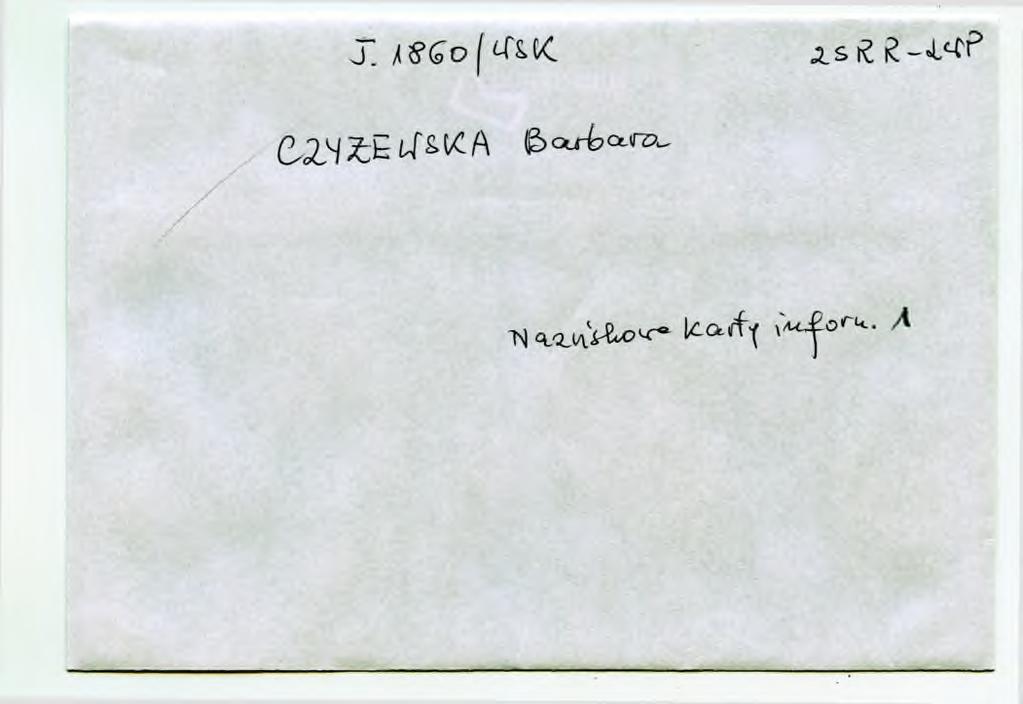 J. 1860/WSK ZSRR-ZWP
CZYŻEWSKA Barbara
Nazwiskowe karty inform. 1